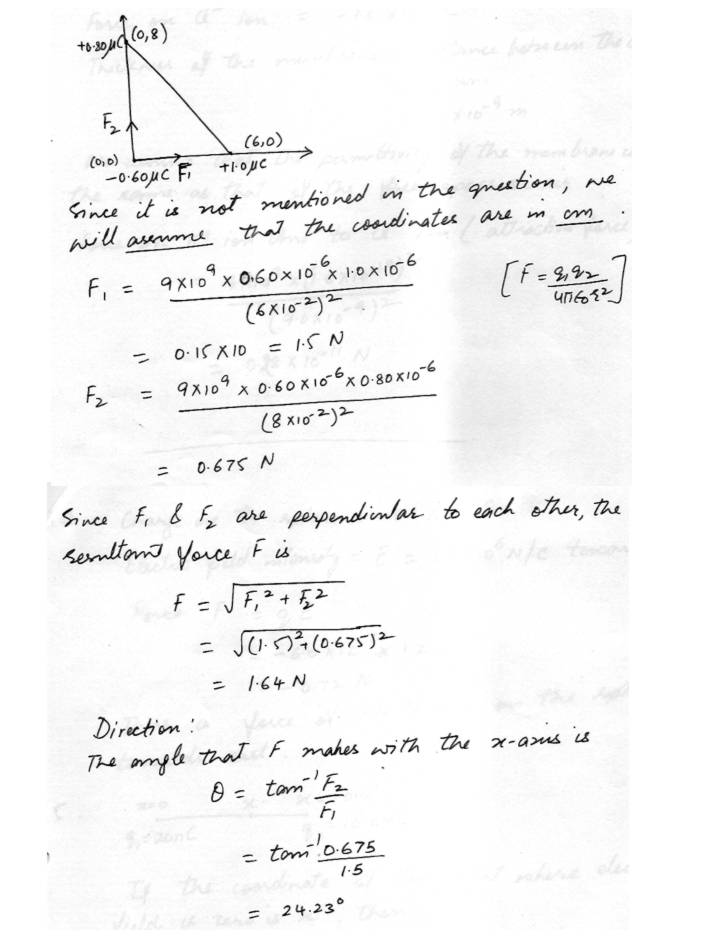 +0.80μC (0,8)
F₂
(6,0)
(0,0)
-0.60μC F₁ +1.0μC
Since it is not mentioned in the question, we
will assume that the coordinates are in cm.
F₁ = 9×10⁹ × 0.60×10⁻⁶ × 1.0×10⁻⁶ / (6×10⁻²)² [F = q₁q₂ / 4πε₀r²]
= 0.15×10 = 1.5 N
F₂ = 9×10⁹ × 0.60×10⁻⁶ × 0.80×10⁻⁶ / (8×10⁻²)²
= 0.675 N
Since F₁ & F₂ are perpendicular to each other, the
resultant force F is
F = √(F₁² + F₂²)
= √((1.5)² + (0.675)²)
= 1.64 N
Direction :
The angle that F makes with the x-axis is
θ = tan⁻¹ F₂/F₁
= tan⁻¹ 0.675/1.5
= 24.23°